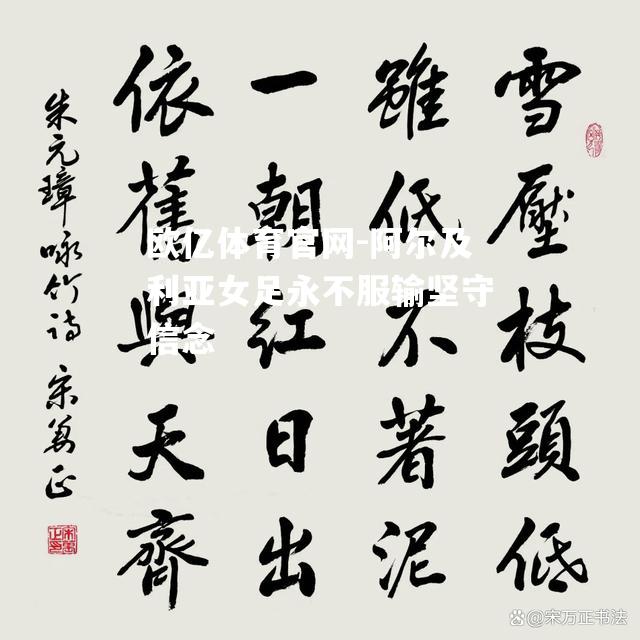 雪壓枝頭低
雖低不著泥
一朝紅日出
依舊與天齊
朱元璋咏竹诗 宋万正
欧亿体育官网-阿尔及
利亚女足永不服输坚守
信念
@宋万正书法